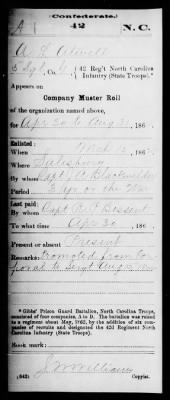 Confederate.
A 42 N.C.
A. F. Atwell
3 Sgt, Co. G, 42 Reg't North Carolina
Infantry (State Troops).*
Appears on
Company Muster Roll
of the organization named above,
for Apr 30 to Aug 31, 186
Enlisted:
When Mch 12, 186
Where Salisbury
By whom Capt J. A. Blackwelder
Period 3 yrs or the War
Last paid:
By whom Capt R. P. Bessent
To what time Apr 30, 186
Present or absent Present
Remarks: Promoted from Cor
poral to Sergt Aug
*Gibbs' Prison Guard Battalion, North Carolina Troops,
consisted of four companies, A to D. The battalion was raised
to a regiment about May, 1862, by the addition of six com-
panies of recruits and designated the 42d Regiment North
Carolina Infantry (State Troops).
Book mark:
J. W. Williams
(642) Copyist.